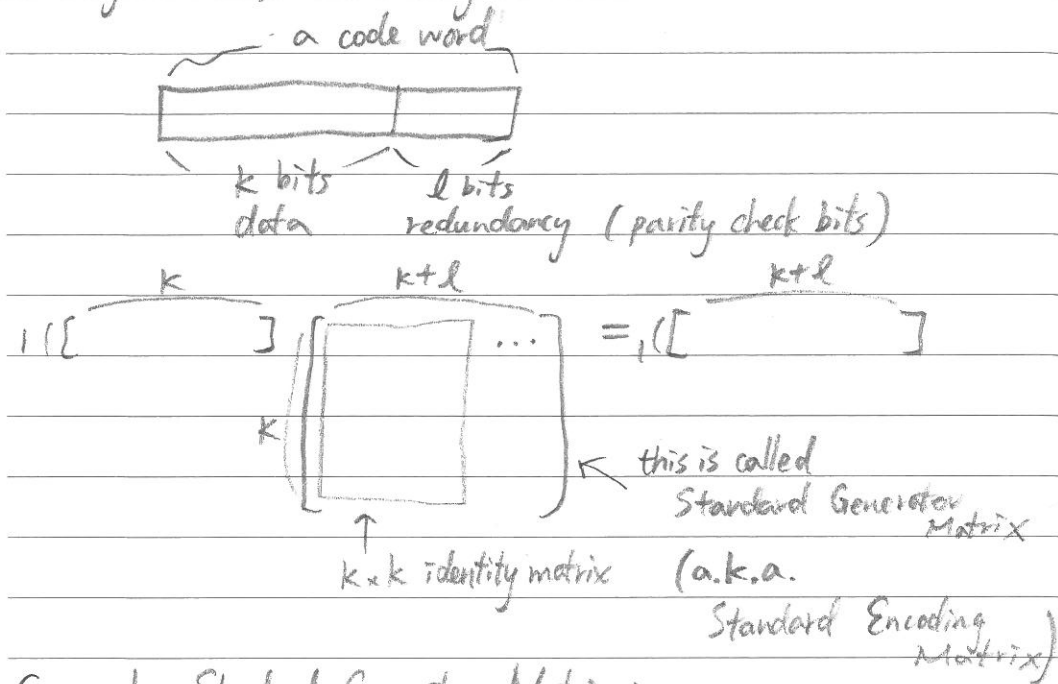 a code word
k bits l bits
data redundancy (parity check bits)
k k+l k+l
1([ ] [ ... ] = 1([ ]
k
this is called
Standard Generator
Matrix
k×k identity matrix (a.k.a.
Standard Encoding
Matrix)
Standard Generator Matrix